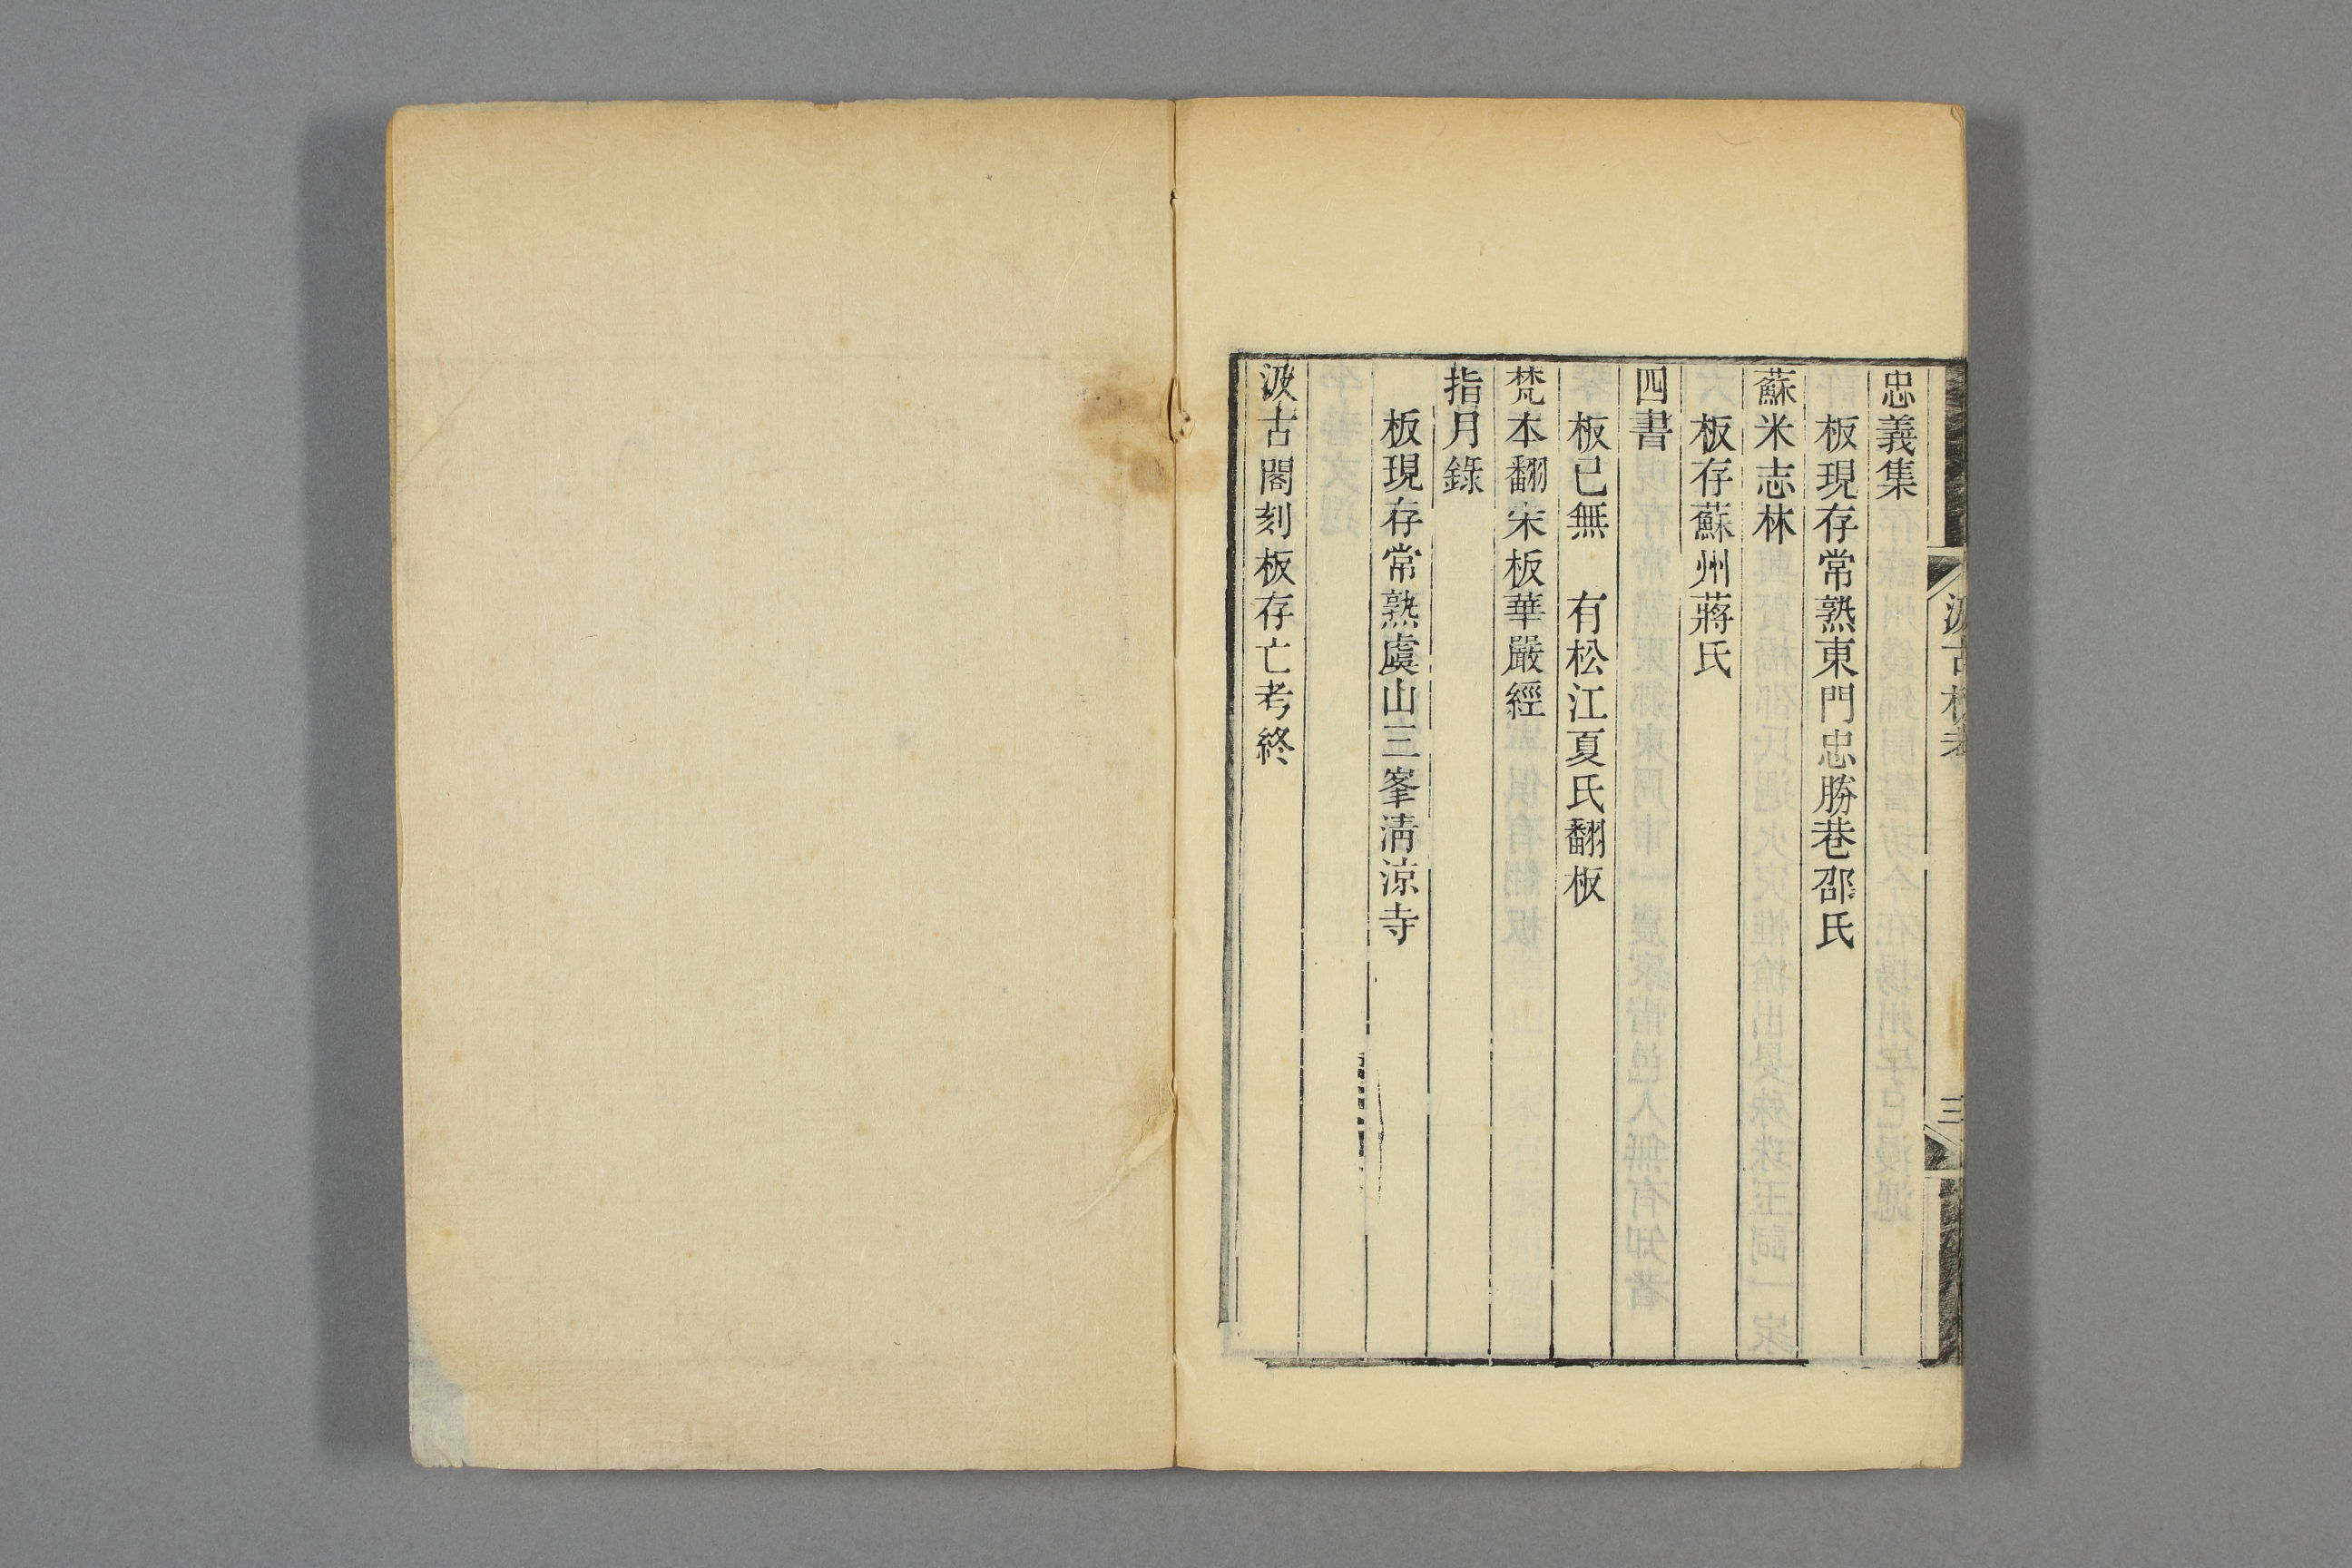 忠義集
板現存常熟東門忠勝巷邵氏
蘇米志林
板存蘇州蔣氏
四書
板已無　有松江夏氏翻板
梵本翻宋板華嚴經
指月錄
板現存常熟虞山三峯淸涼寺
汲古閣刻板存亡考終
汲古板考
三